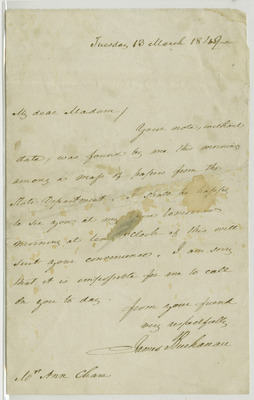 Tuesday 13 March 1849
My dear Madam/
Your note, without
date, was found by me this morning
among a mass of papers from the
State Department. I shall be happy
to see you at my house tomorrow
morning at ten o'clock if this will
suit your convenience. I am sorry
that it is impossible for me to call
on you to day.
from your friend
very respectfully
James Buchanan
Mrs Ann Chase